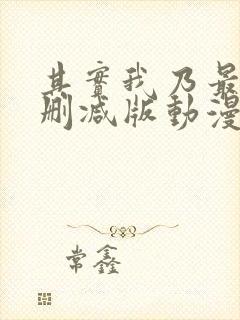 其實我乃最
刪减版動漫
常鑫